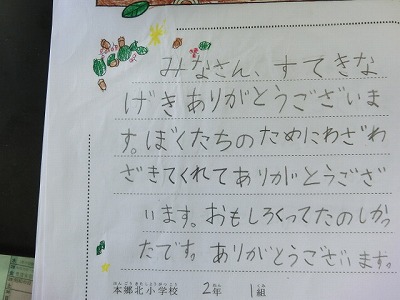 みなさん、すてきな
げきありがとうございま
す。ぼくたちのためにわざわ
ざきてくれてありがとうござ
います。おもしろくってたのしかっ
たです。ありがとうございます。
ほんごうきたしょうがっこう ねん くみ
本郷北小学校 2年 1組